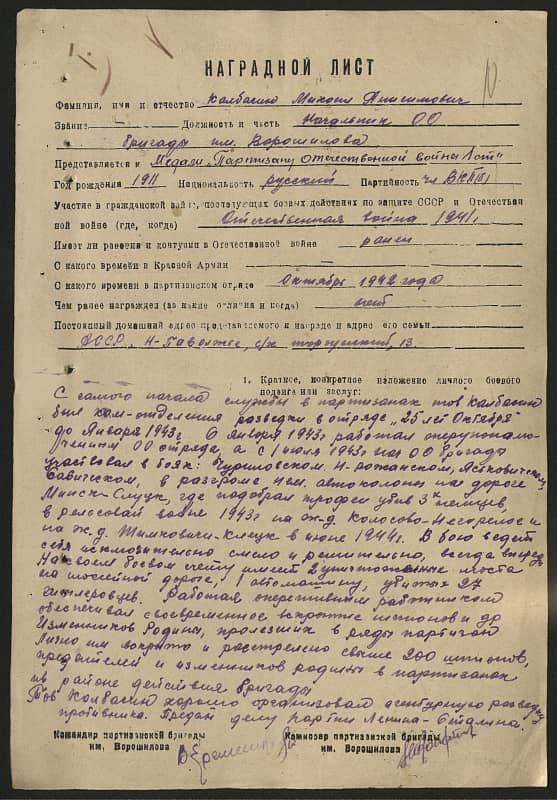 НАГРАДНОЙ ЛИСТ
Фамилия, имя и отчество Колбасин Михаил Анисимович
Звание Должность и часть Начальник ОО
бригады им. Ворошилова
Представляется к Медали „Партизану Отечественной война I ст"
Год рождения 1911 Национальность русский Партийность чл ВКП(б)
Участие в гражданской войне, последующих боевых действиях по защите СССР и Отечествен
ной войне (где, когда) Отечественная война 1941г.
Имеет ли ранения и контузии в Отечественной войне ранен
С какого времени в Красной Армии
С какого времени в партизанском отряде Октябрь 1942 года
Чем ранее награжден (за какие отличия и когда) нет
Постоянный домашний адрес представляемого к награде и адрес его семьи
АССР, 13.
1. Краткое, конкретное изложение личного боевого
подвига или заслуг:
С самого начала службы в партизанах тов Колбасин
был ком-отделения разведки в отряде „25 лет Октября"
до Января 1943г. С Января 1943г. работал оперуполномо-
ченным ОО отряда, а с 1 июля 1943г нач ОО бригады
участвовал в боях: Чуриловском,
в разгроме нем. автоколоны на дороге
Минск-Слуцк, где подобрал трофеи убив 3х немцев,
в рельсовой войне 1943г на ж-д. Колосово-Негорелое и
на ж.д. Тимковичи-Клецк в июне 1944г. В бою ведет
себя исключительно смело и решительно, всегда впереди
На своем боевом счету имеет 2 уничтоженные моста
на шоссейной дороге, 1 автомашину, убитых 27
гитлеровцев. Работая оперативным работником
обеспечивал своевременное вскрытие шпионов и др
Изменников Родины, пролезших в ряды партизан
Лично им вскрыто и расстреляно свыше 200 шпионов,
предателей и изменников родины в партизанах
и в районе действия бригады
Тов Колбасин хорошо организовал агентурную разведку
противника. Предан делу партии Ленина-Сталина.
Командир партизанской бригады
им. Ворошилова
Комиссар партизанской бригады
им. Ворошилова